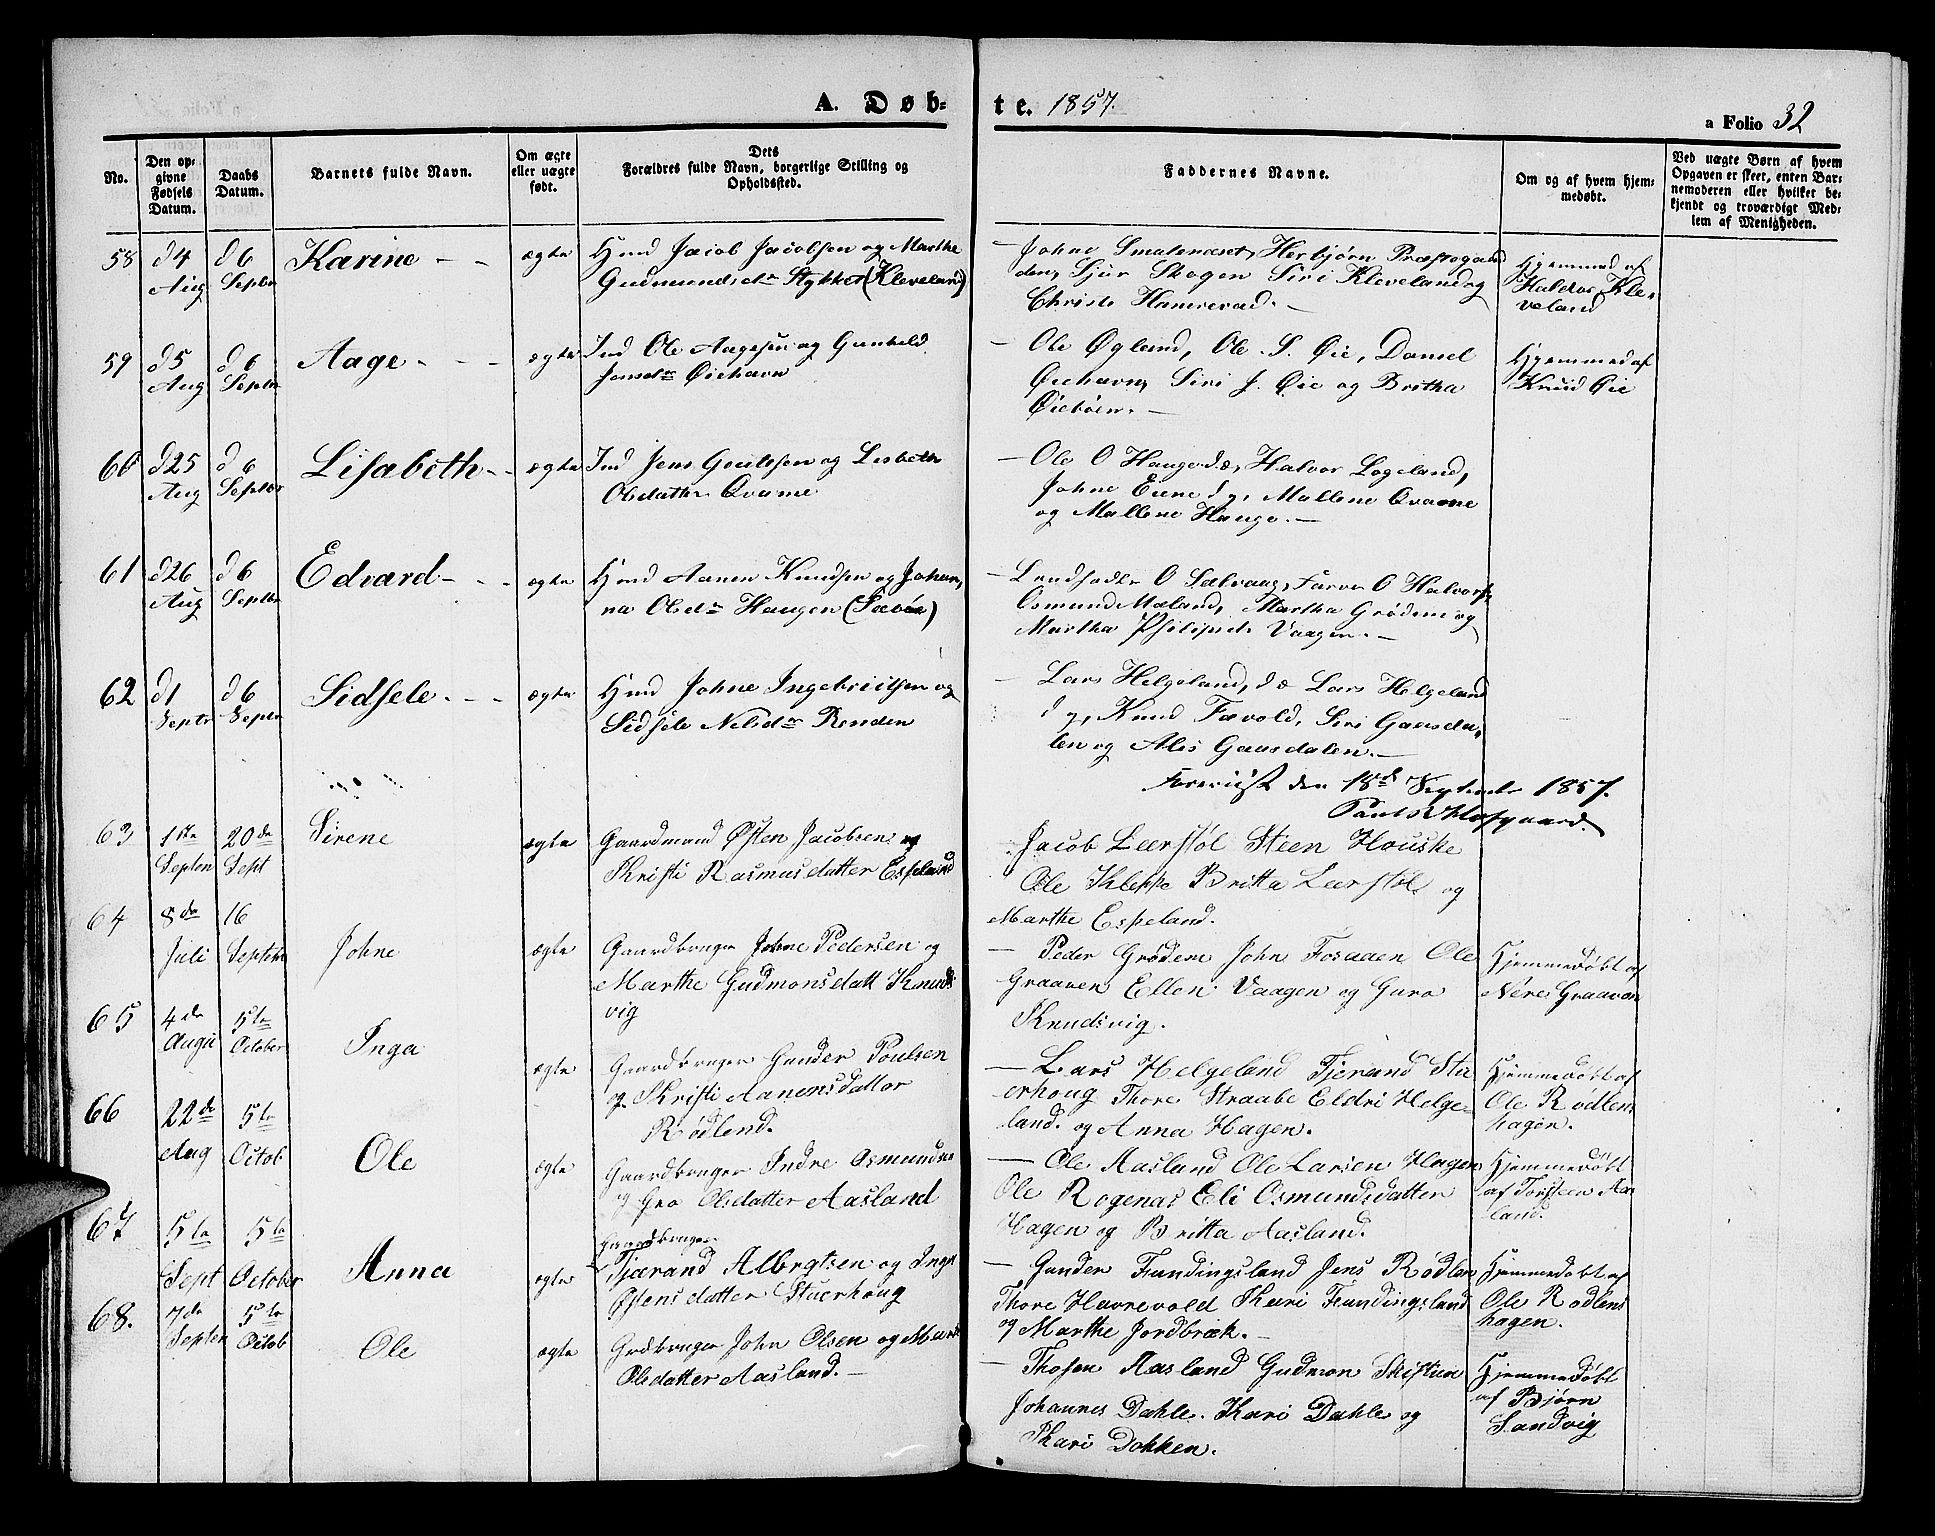 A. Døb-
te. 1857.
a Folio 32
No.
Den op-
givne
Fødsels
Datum.
Daabs
Datum.
Barnets fulde Navn.
Om ægte
eller uægte
født.
Dets
Forældres fulde Navn, borgerlige Stilling og
Opholdssted.
Faddernes Navne.
Om og af hvem hjem-
medøbt.
Ved uægte Børn af hvem
Opgaven er skeet, enten Bar-
nemoderen eller hvilket be-
kjendt og troværdigt Med-
lem af Menigheden.
58
d4
Aug
d6
Septbr
Karine
ægte
Hmd Jacob Jacobsen og Marthe
Gudmundsdr Stykket (Kleveland)
Johne Smalenæset, Herbjørn Præstegaar
den, Sjur Skogen Siri Kleveland og
Christi Hamrevad.
Hjemmed af
Haldor Kle-
veland
59
d5
Aug
d6
Septbr
Aage
ægte
Ind Ole Aagesen og Gunhild
Jonsdr Øiehavn
Ole Øgland, Ole S. Øie, Daniel
Øiehavn, Siri J. Øie og Britha
Øiebøen.
Hjemmed af
Knud Øie
60
d25
Aug
d6
Septbr
Lisabeth
ægte
Ind Jens Gautesen og Lisbeth
Olsdatter Qvame
Ole O Hauge d.æ, Halvor Løgeland,
Johne Eiene d y, Mallene Qvame
og Mallene Hauge.
61
d26
Aug
d6
Septbr
Edvard
ægte
Hmd Aanen Knudsen og Johan,
na Olsdr Haugen (Sæbøe)
Landhadlr O Sælvaag, Farver O Halvors,
Osmund Mæland, Martha Grødem og
Martha Philipsdr Vaagen.
62
d1
Septr
d6
Septr
Sidsele
ægte
Hmd Johne Ingebrictsen og
Sidsele Nelsdr Renden
Lars Helgeland, d æ Lars Helgeland
d y, Knud Fævold, Siri Gaasda,
len og Alis Gaasdalen.
Foreviist den 18d September 1857.
63
1ste
Septen
20de
Sept
Sirene
ægte
Gaardmand Østen Jacobsen og
Kristi Rasmusdatter Espeland
Jacob Leerstøl Steen Houske
Ole Kleppe Britta Leerstøl og
Marthe Espeland.
64
8de
Juli
16
Septbr
Johne
ægte
Gaardbruger Johne Pedersen og
Marthe Gudmonsdatt Knuds
vig
Peder Grødem John Fosaaen Ole
Graaven Ellen Vaagen og Guro
Knudsvig.
Hjemmedøbt af
Nere Graaven
65
4de
Augu
5te
October
Inga
ægte
Gaardbruger Gunder Poulsen
og Kristi Aanensdatter
Rødlend.
Lars Helgeland Tjerand Stu
erhoug Thore Straabe Eldri Helge-
land. og Anna Hagen.
Hjemmedøbt af
Ole Rødlens
hagen.
66
22de
Aug
5te
Octob
Ole
ægte
Gaardbruger Indre Osmundsen
og Gro Olsdatter Aasland
Ole Aasland Ole Larsen Hagen
Ole Rogenæs Eli Osmundsdatter
Hagen og Britta Aasland.
Hjemmedøbt
af Torsteen Aas
land.
67
5te
Sept
5te
October
Anna
ægte
Gaardbruger
Tjærand Albregtsen og Inge
Østensdatter Stuerhoug
Gunder Fundingsland Jens Rødlen
Thore Havrevold Kari Fundingsland
og Marthe Jordbræk.
Hjemmedøbt af
Ole Rødlens
hagen.
68.
7de
Septen
5te
Octob
Ole
ægte
Grdbruger John Olsen og Mart
Olsdatter Aasland.
Aasland Gudmon
Johannes Dahle. Kari Dahle og
Kari Dokken.
Hjemmedøbt
af Bjørn
Sandvig